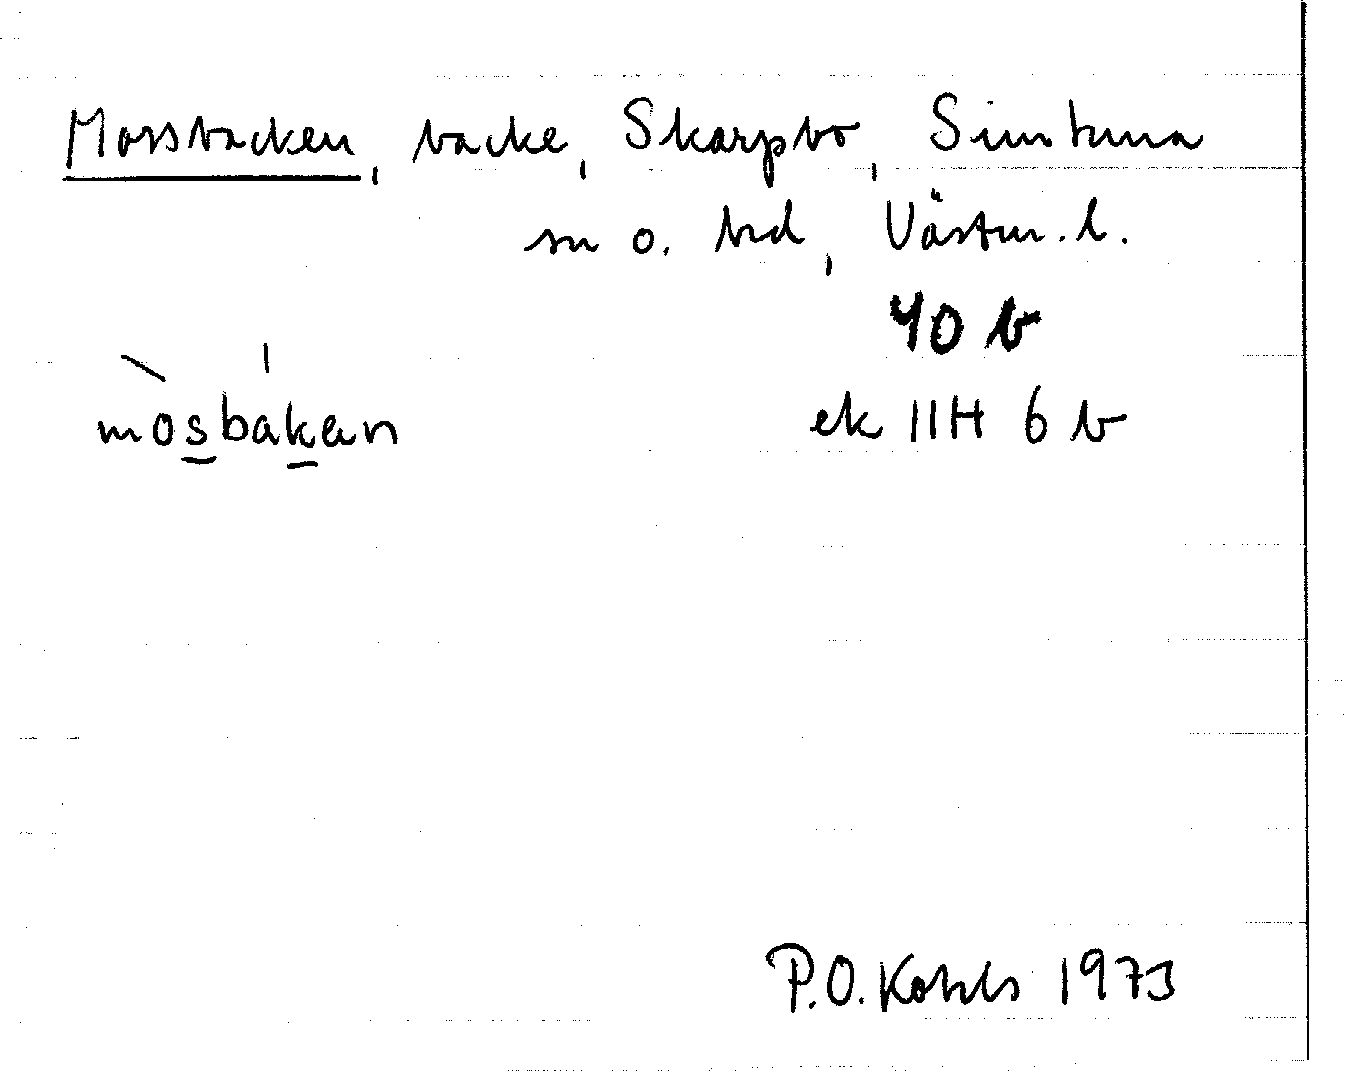 Mossbacken, backe, Skarpbo, Simtuna
sn o. hd, Västm. l.
40 b
mòsbákan
ek 11H 6 b
P.O. Kohls 1973